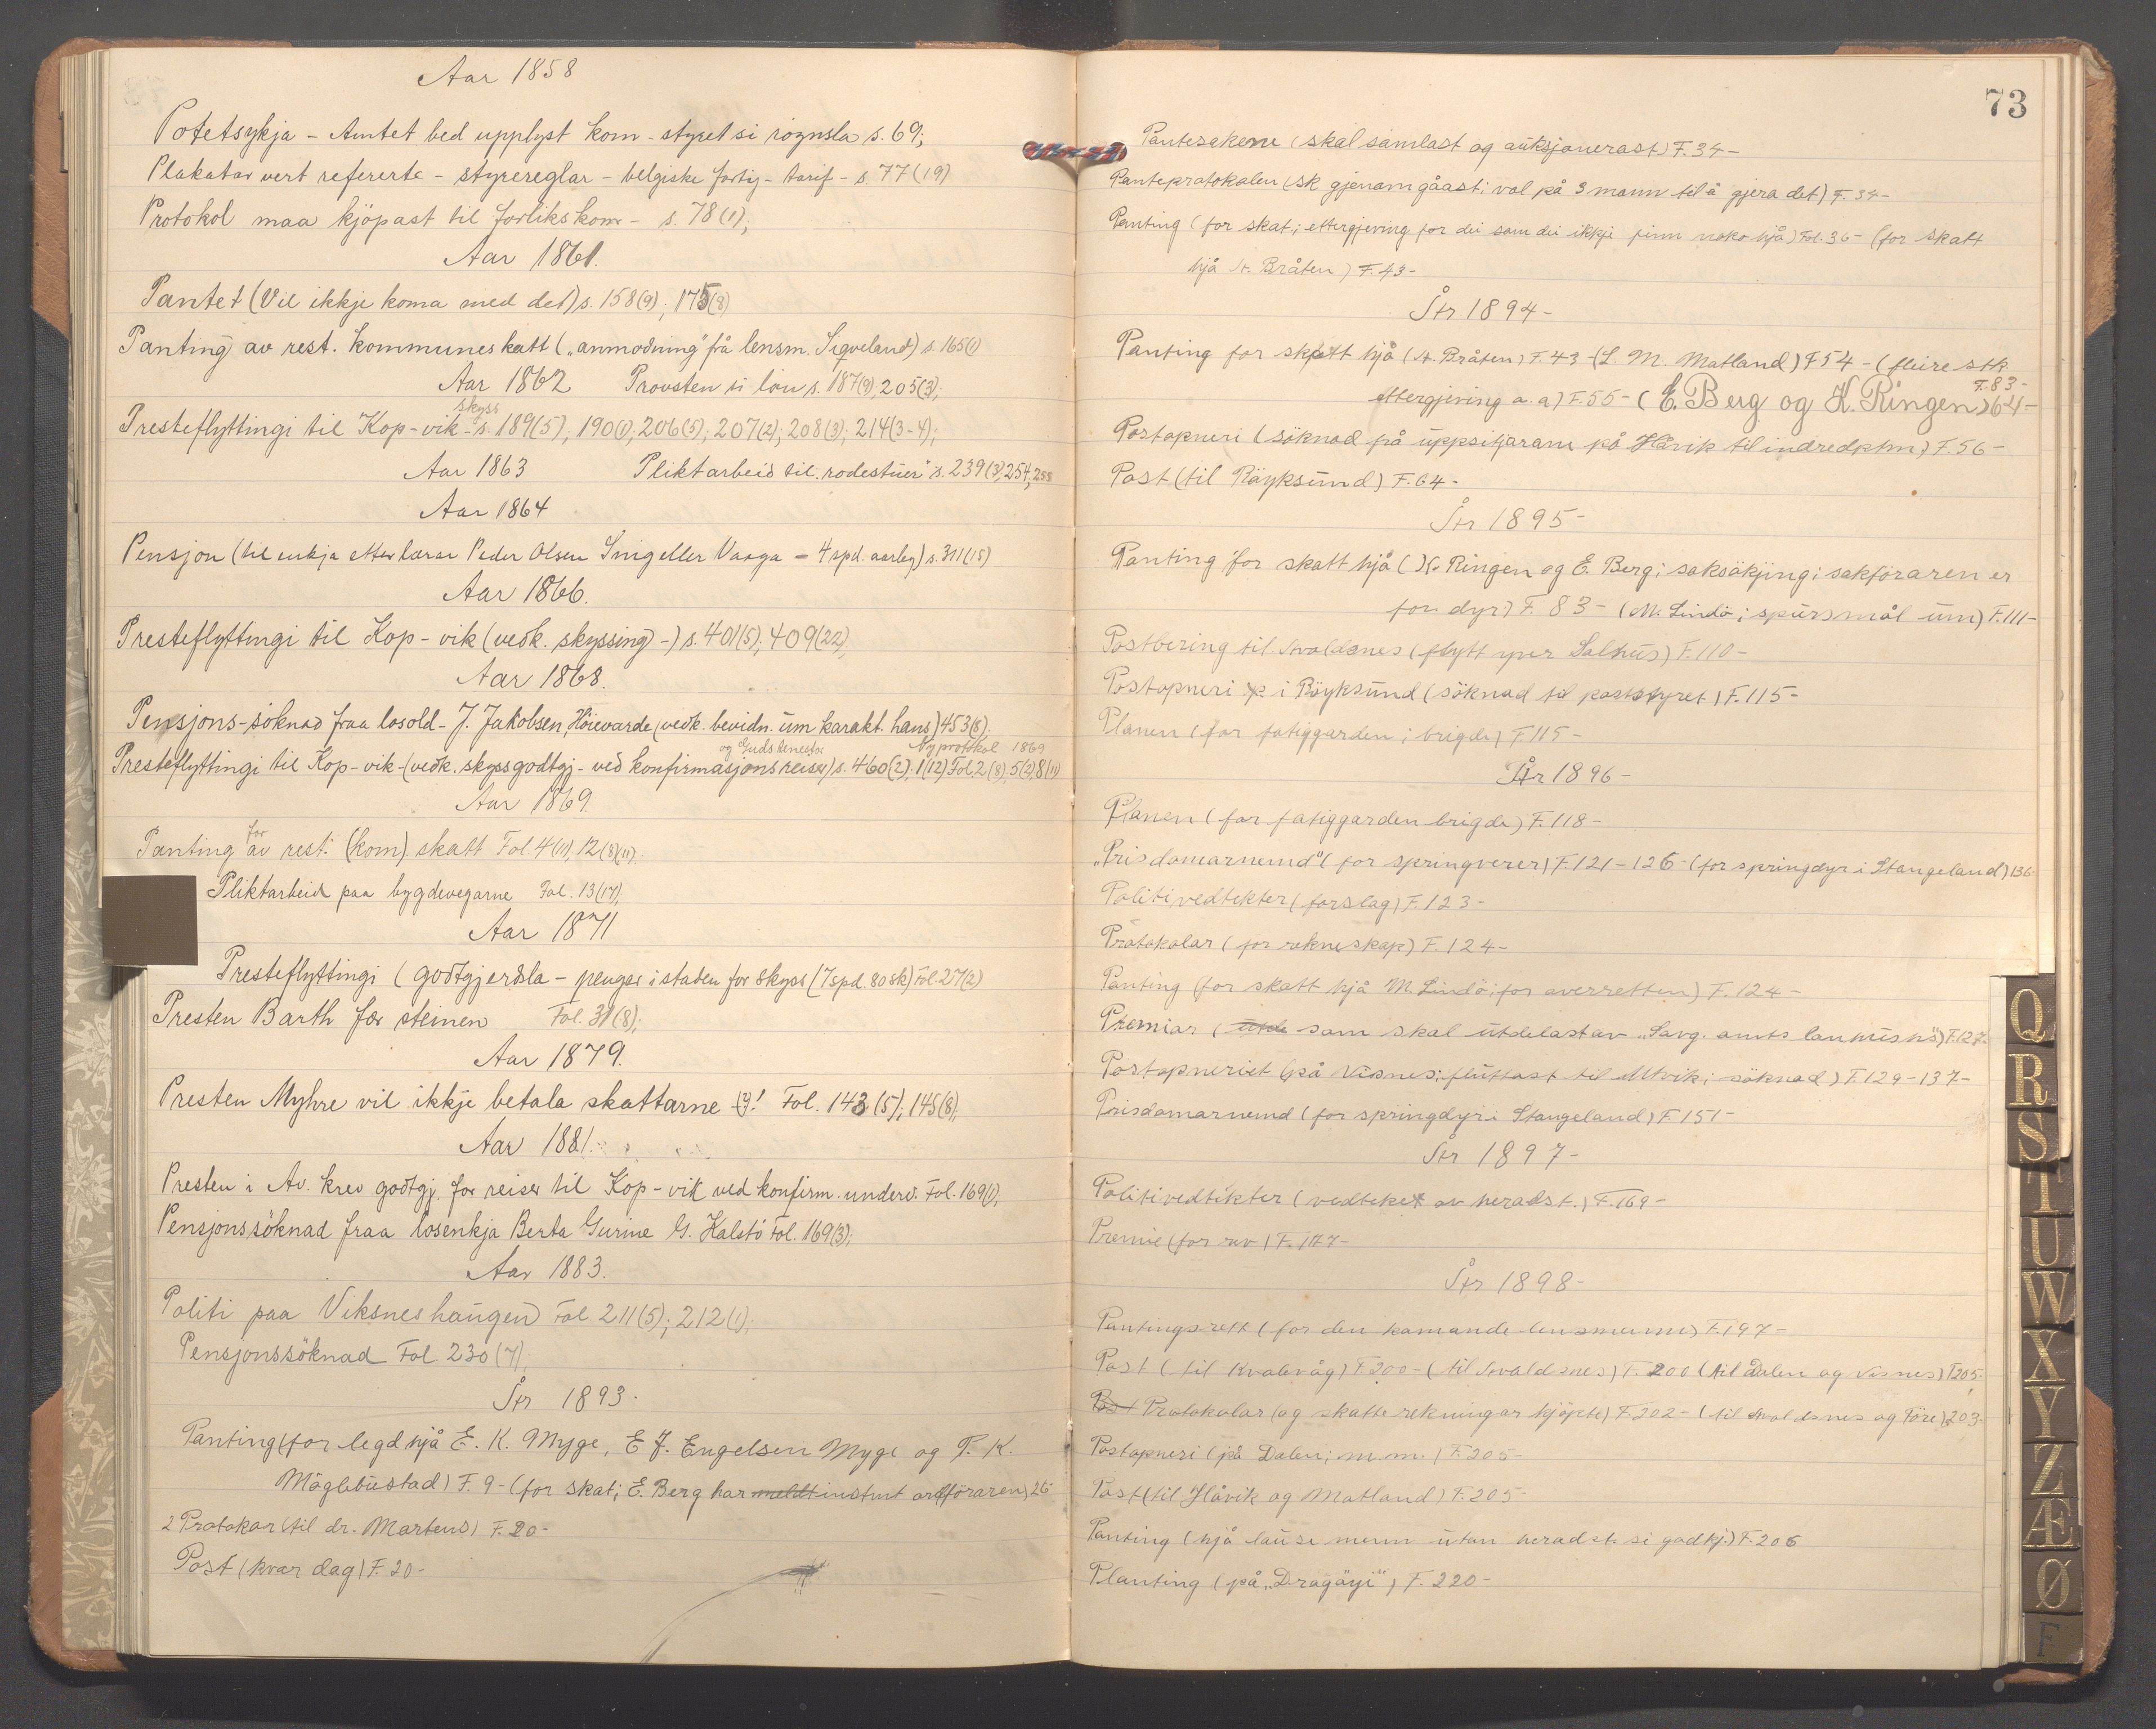 Aar 1858
Potetsykja - Amtet bed upplyst kom-styret si røynsla s. 69;
Plakatar vert refererte - styrereglar - belgiske fartøj - tarif - s. 77(19)
Protokol maa kjöpast til forlikskom - s. 78(1);
Aar 1861.
Pantet (Vil ikkje koma med det) s. 158(9); 175(8)
Panting av rest. kommuneskatt („anmodning" frå lensm. Sigveland) s. 165(1)
Aar 1862 Provsten si løn s. 187(9), 205(3);
skyss
Presteflyttingi til Kop-vik - s. 189(5); 190(1); 206(5); 207(2); 208(3); 214(3-4);
Aar 1863 Pliktarbeid til „rodestuer" s. 239(3), 254, 255
Aar 1864
Pensjon (til enkja etter lærar Peder Olsen Snig eller Vaaga - 4 spd. aarleg) s. 311(15)
Aar 1866.
Presteflyttingi til Kop-vik (vedk. skyssing -) s. 401(5); 409(22)
Aar 1868.
Pensjons-söknad fraa losold - J. Jakobsen, Höievarde (vedk. bevidn. um karakt. hans) 453(8).
og Gudstenester Ny protokol 1869
Presteflyttingi til Kop-vik - (vedk. skyssgodtgj - ved konfirmasjonsreiser) s. 460(2); 1(12) Fol. 2(8), 5(2), 8(11)
Aar 1869.
for
Panting av rest. (kom) skatt Fol. 4(11), 12(8)(11).
Pliktarbeid paa bygdevegarne Fol. 13(17),
Aar 1871
Presteflyttingi (godtgjersla - pengar istaden for skyss (7 spd. 80 sk) Fol. 27(2)
Presten Barth fær steinen Fol. 31(8);
Aar 1879.
Presten Myhre vil ikkje betala skattarne (?)! Fol. 143(5); 145(8);
Aar 1881.
Presten i Av. krev godtgj. for reiser til Kop-vik ved konfirm. underv. Fol. 169(1),
Pensjonssöknad fraa losenkja Berta Gurine G. Kalstö Fol. 169(3);
Aar 1883.
Politi paa Viksneshaugen Fol 211(5); 212(1);
Pensjonssöknad Fol. 230(7);
År 1893.
Panting (for legd hjå E. K. Myge, E J. Engelsen Myge og P. K.
Möglebustad) F. 9 - (for skat; E. Berg har meldt instmt ordföraren) 26
2 Protokar (til dr. Martens) F. 20 -
Post (kvar dag) F. 20 -
73
Pantesakerne (skal samlast og auksjonerast) F. 34 -
Panteprotokolen (sk gjenomgåast; val på 3 mann til å gjera det) F. 34 -
Panting (for skat; ettergjeving for dei som dei ikkje finn noko hjå) Fol. 36 - (for skatt
hjå A. Bråten) F. 43 -
År 1894 -
Panting for skatt hjå (A. Bråten) F. 43 - (L. M. Matland) F 54 - (fleire stk.
F. 83 -
ettergjeving a. a) F. 55 - (E. Berg og K. Ringen) 64 -
Postopneri (söknad på uppsitjarane på Håvik til indredptm) F. 56 -
Post (til Röyksund) F. 64 -
År 1895 -
Panting for skatt hjå (K. Ringen og E. Berg; saksökjing; sakföraren er
for dyr) F. 83 - (M. Lindö; spursmål um) F. 111 -
Postbering til Avaldsnes (flytt yver Salhus) F. 110 -
Postopneri i Röyksund (söknad til poststyret) F. 115 -
Planen (for fatiggarden; brigde) F 115 -
År 1896 -
Planen (for fatiggarden brigde) F. 118 -
„Prisdomarnemnd" (for springverer) F. 121 - 126 - (for springdyr i Stangeland) 136
Politivedtekter (forslag) F. 123 -
Protokolar (for rekneskap) F. 124 -
Panting (for skatt hjå M. Lindö; for overretten) F. 124 -
Premiar (utde som skal utdelast av „Savg. amts lanhush") F. 127 -
Postopneriet (på Visnes; fluttast til Utvik; söknad) F. 129 - 137 -
Prisdomarnemd (for springdyr i Stangeland) F 151 -
År 1897 -
Politivedtekter (vedteket av heradst.) F. 169 -
Premie (for rev) F. 177 -
År 1898 -
Pantingsrett (for den komande lensmann) F. 197 -
Post (til Kvalavåg) F 200 - (til Avaldsnes) F. 200 (til Dalen og Visnes) F 205.
Post Protokolar (og skatterekningar kjöpte) F. 202 - (til Avaldsnes og Före) 203.
Postopneri (på Dalen; m.m.) F. 205 -
Post (til Håvik og Matland) F. 205 -
Panting (hjå lause menn utan heradst. si godkj.) F. 206
Planting (på „Dragöyi") F. 220 -
Q
R
S
T
U
W
X
Y
Z
Æ
Ø
F